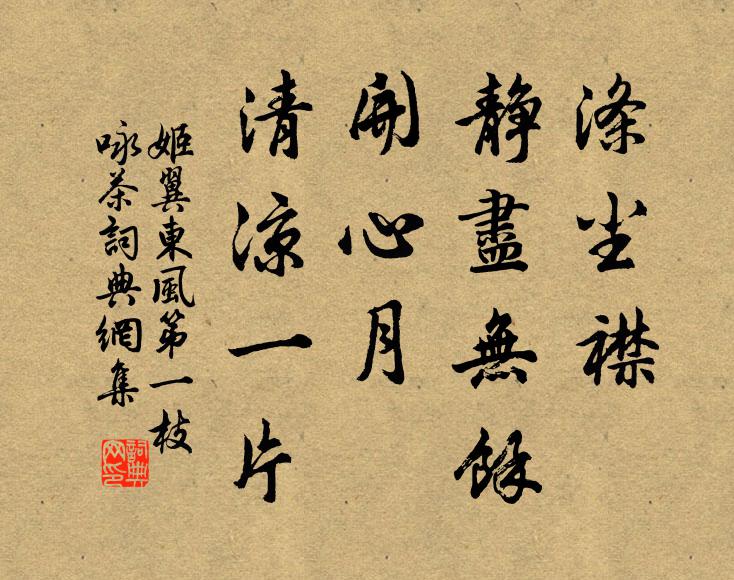 滌尘襟
静盡無餘
開心月
清凉一片
姬翼東風第一枝
咏茶詞典網集
詞典網印